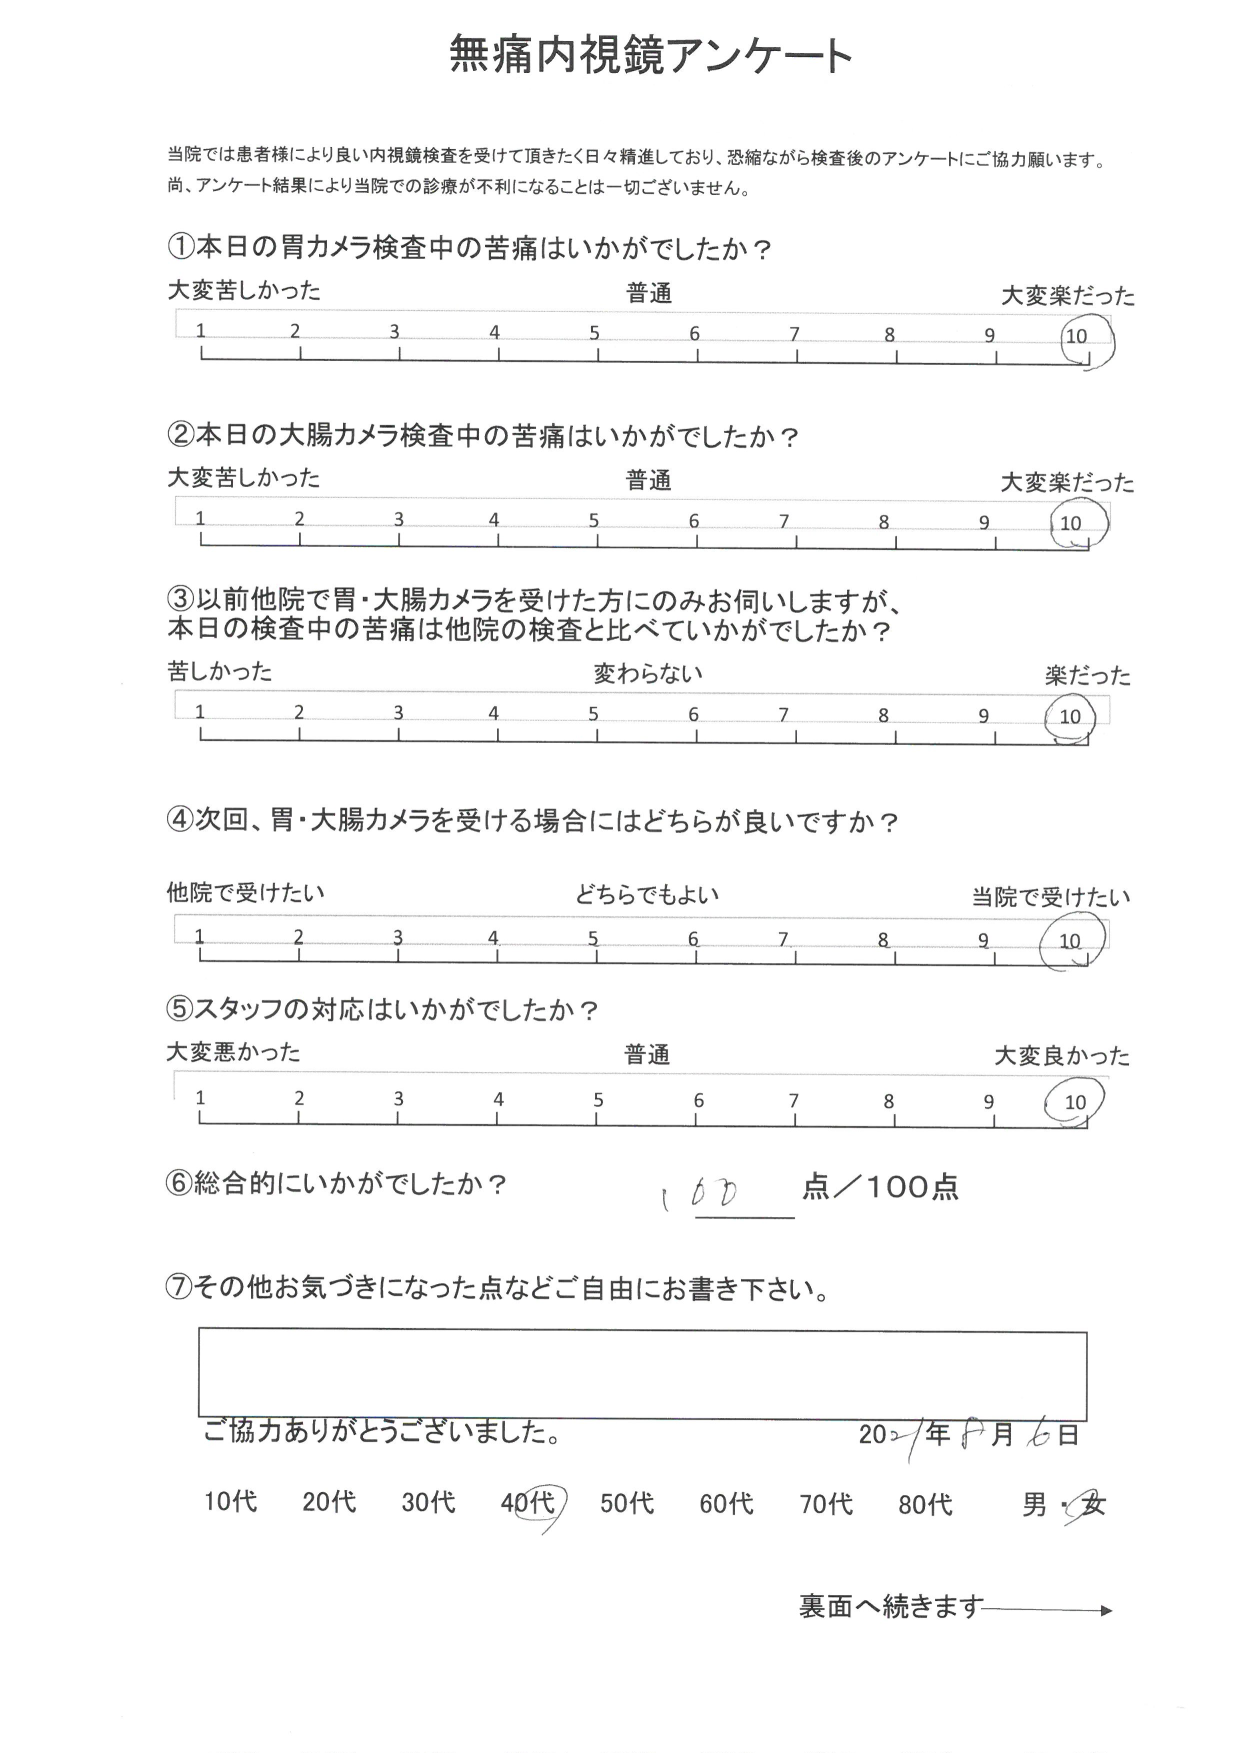 無痛内視鏡アンケート
当院では患者様により良い内視鏡検査を受けて頂きたく日々精進しており、恐縮ながら検査後のアンケートにご協力願います。
尚、アンケート結果により当院での診療が不利になることは一切ございません。
①本日の胃カメラ検査中の苦痛はいかがでしたか？
大変苦しかった 普通 大変楽だった
1 2 3 4 5 6 7 8 9 10
②本日の大腸カメラ検査中の苦痛はいかがでしたか？
大変苦しかった 普通 大変楽だった
1 2 3 4 5 6 7 8 9 10
③以前他院で胃・大腸カメラを受けた方にのみお伺いしますが、
本日の検査中の苦痛は他院の検査と比べていかがでしたか？
苦しかった 変わらない 楽だった
1 2 3 4 5 6 7 8 9 10
④次回、胃・大腸カメラを受ける場合にはどちらが良いですか？
他院で受けたい どちらでもよい 当院で受けたい
1 2 3 4 5 6 7 8 9 10
⑤スタッフの対応はいかがでしたか？
大変悪かった 普通 大変良かった
1 2 3 4 5 6 7 8 9 10
⑥総合的にいかがでしたか？ 100 点／100点
⑦その他お気づきになった点などご自由にお書き下さい。
ご協力ありがとうございました。 2021年8月6日
10代 20代 30代 40代 50代 60代 70代 80代 男・女
裏面へ続きます